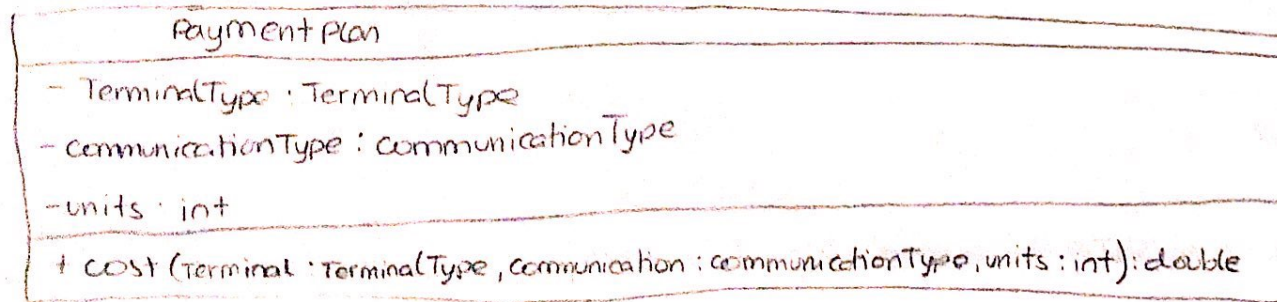 Payment Plan
- TerminalType : TerminalType
- communicationType : communicationType
- units : int
+ cost (Terminal : TerminalType, communication : communicationType, units : int) : double